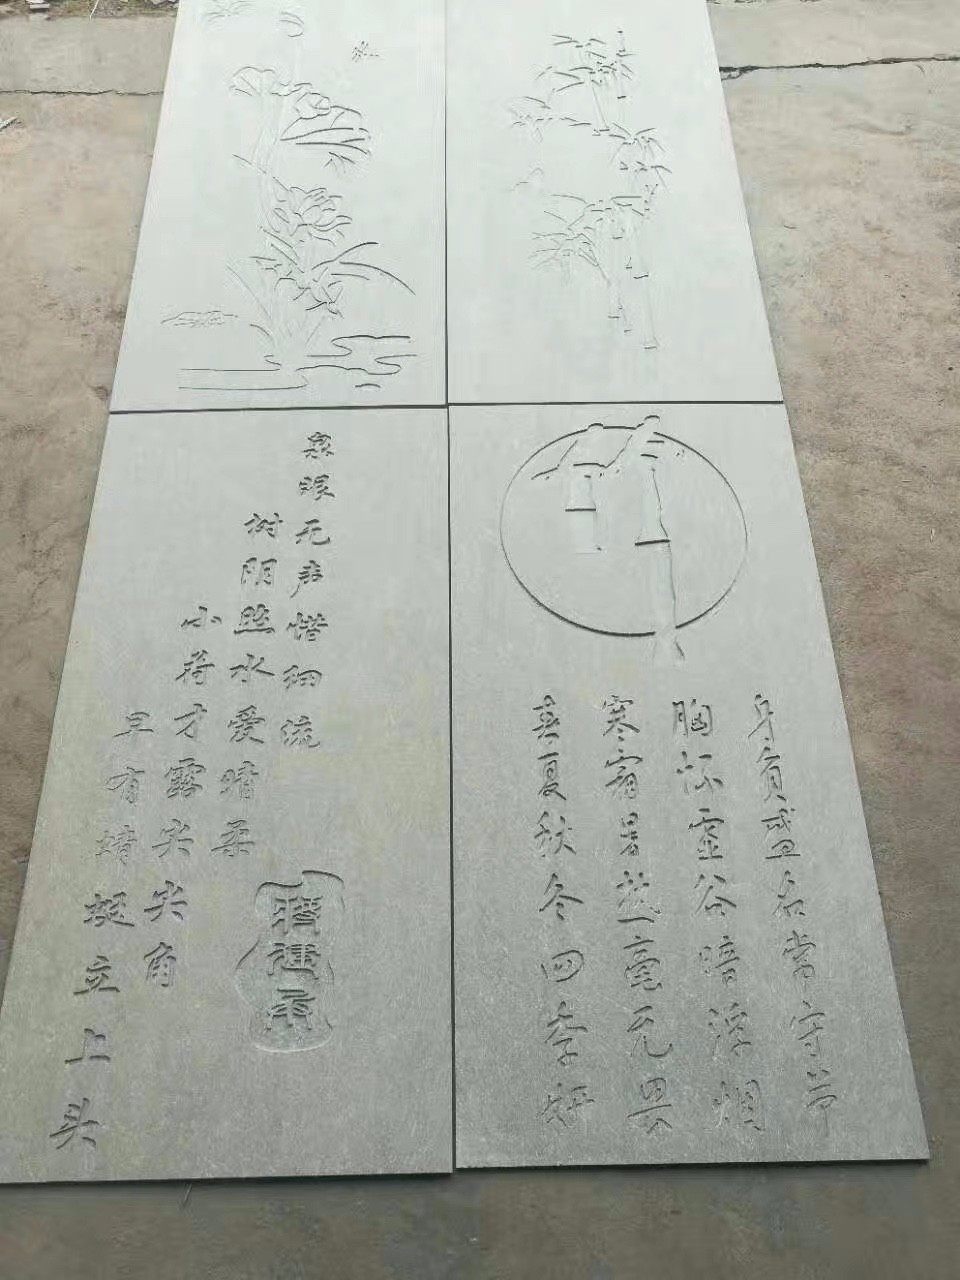 泉眼无声惜细流
树阴照水爱晴柔
小荷才露尖尖角
早有蜻蜓立上头
身负盛名常守节
胸怀虚谷暗浮烟
寒宵暑热毫无畏
春夏秋冬四季妍